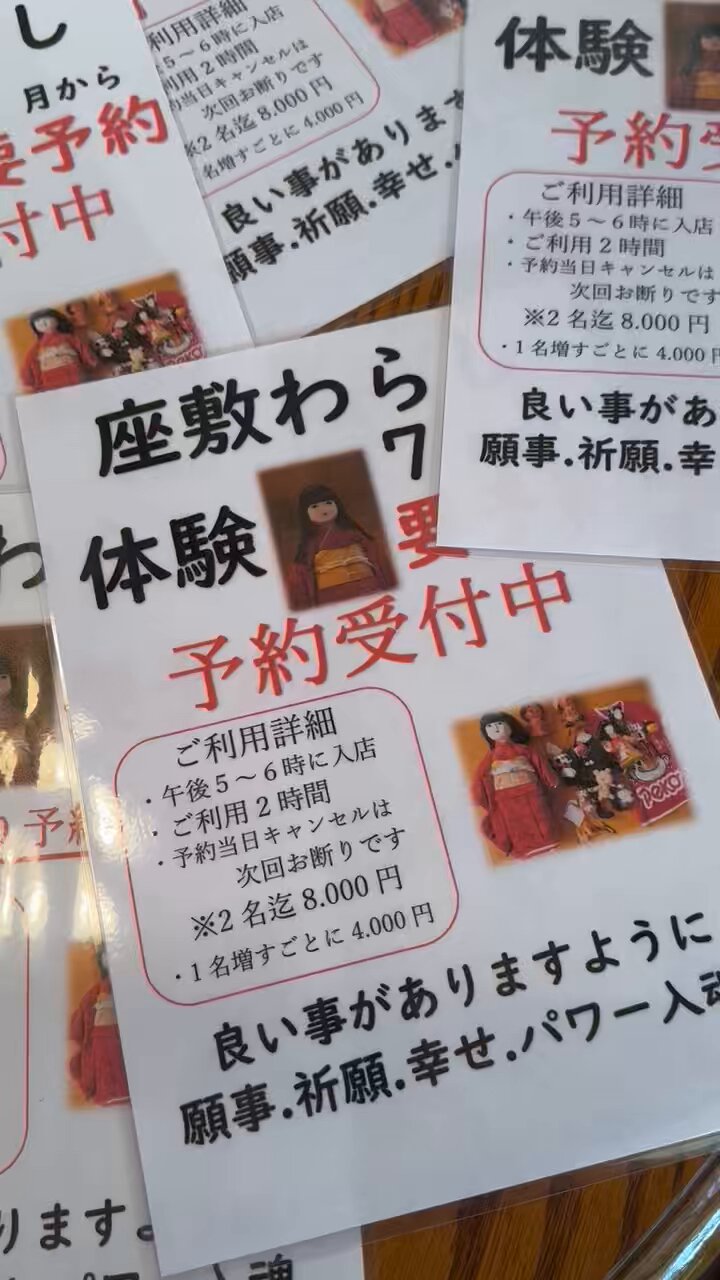 し
月から
要予約
付中
利用詳細
５～６時に入店
利用２時間
約当日キャンセルは
次回お断りです
※2 名迄 8.000 円
名増すごとに 4.000 円
良い事があります
願事.祈願.幸せ.
体験
予約受
ご利用詳細
・午後５～６時に入店
・ご利用２時間
・予約当日キャンセルは
次回お断りです
※2 名迄 8.000 円
・1 名増すごとに 4.000 円
良い事があ
願事.祈願.幸
座敷わら
7
体験
要
予約受付中
ご利用詳細
・午後５～６時に入店
・ご利用２時間
・予約当日キャンセルは
次回お断りです
※2 名迄 8.000 円
・1 名増すごとに 4.000 円
peko
良い事がありますように
願事.祈願.幸せ.パワー入魂
わ
予約
ります。
魂